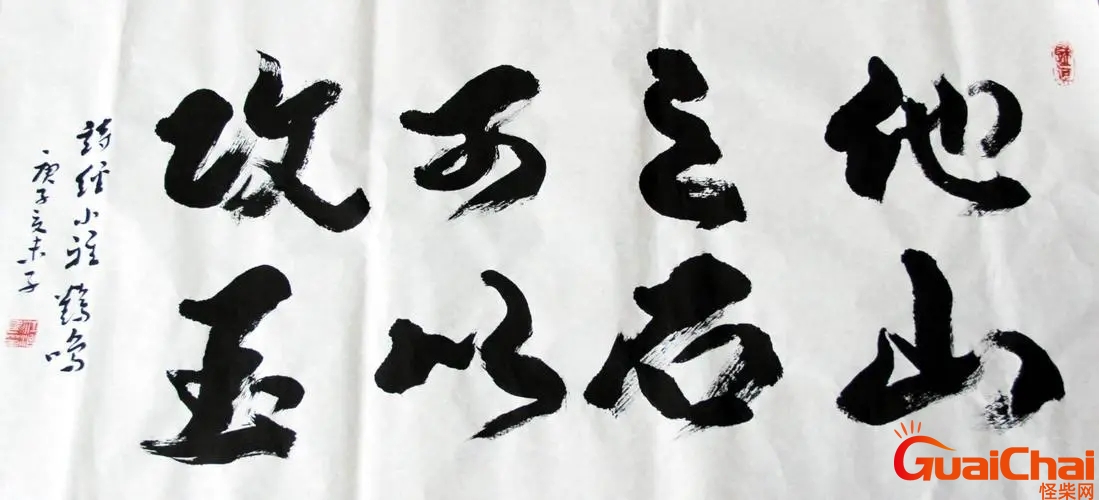 他山
之石
可以
攻玉
詩經小雅 鶴鳴
庚子亥未子
GuaiChai
怪柴网